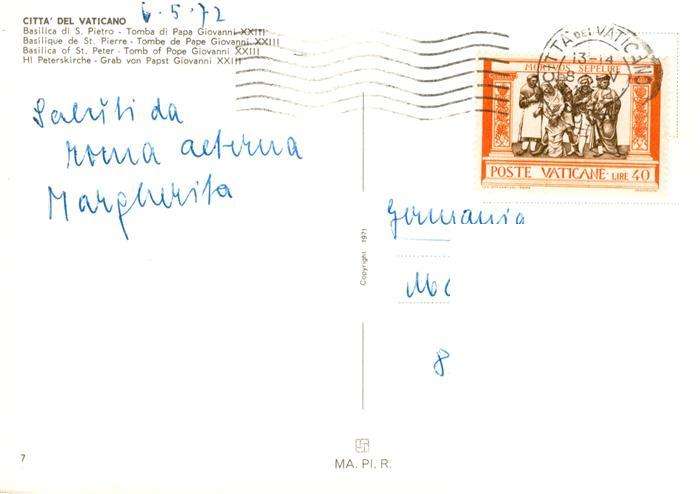 6.5.72
CITTA' DEL VATICANO
Basilica di S. Pietro - Tomba di Papa Giovanni XXIII
Basilique de St. Pierre - Tombe de Pape Giovanni XXIII
Basilica of St. Peter - Tomb of Pope Giovanni XXIII
HI Peterskirche - Grab von Papst Giovanni XXIII
CITTÀ DEL VATICANO
13-14
MORTUOS SEPELIRE
POSTE VATICANE · LIRE 40
Saluti da
roma aeterna
Margherita
Germania
8
Copyright 1971
7
MA. PI. R.